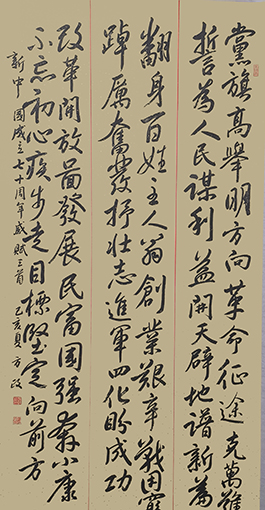 黨旗高舉明方向革命征途克萬難
誓為人民謀利益開天辟地譜新篇
翻身百姓主人翁創業艱辛戰困
踔厲奮發抒壯志進軍四化盼成功
改革開放啚發展民富国強奔小康
不忘初心疾步走目標堅定向前方
新中國成立七十周年感賦三首 己亥夏 方政